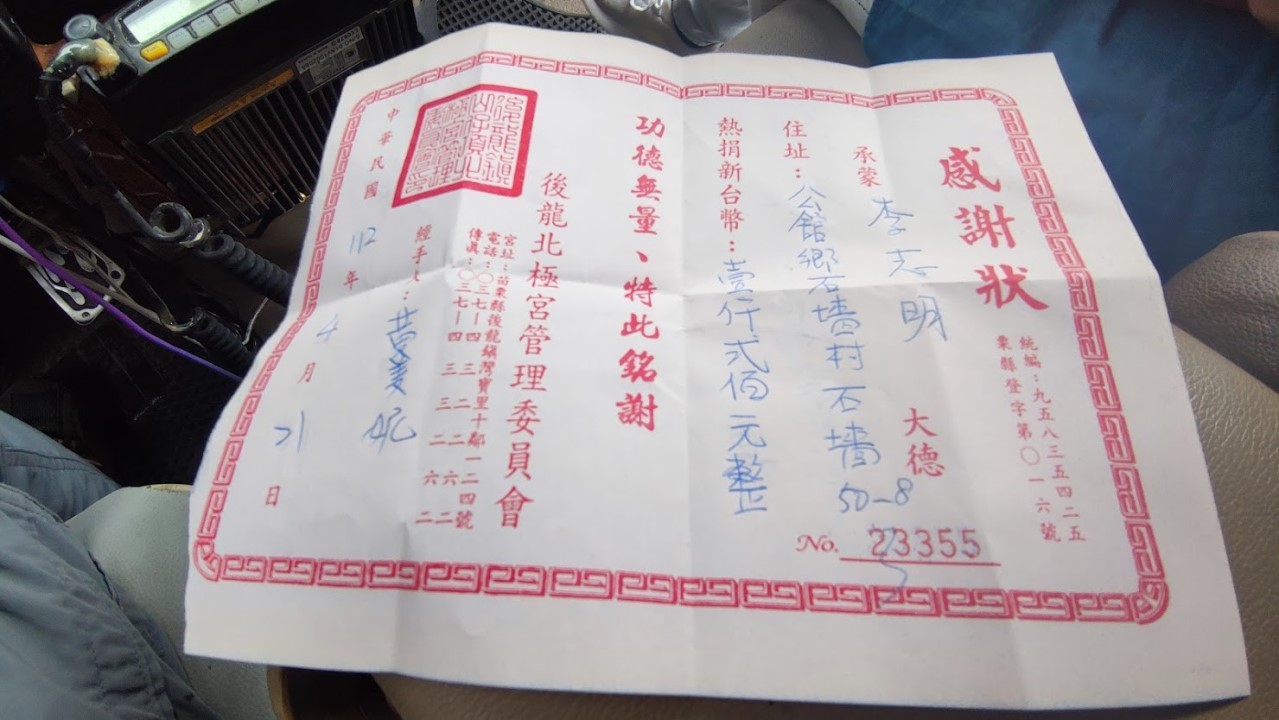 感謝狀
統編：九五八三五四二五
栗縣登字第〇一六號
承蒙 李志明 大德
住址：公館鄉石墻村石墻50-8
No. 23355
熱捐新台幣：壹仟弍佰元整
功德無量、特此銘謝
後龍北極宮管理委員會
宮址：苗栗縣後龍鎮灣寶里十鄰一二四號
電話：〇三七—四三二二六二
傳真：〇三七—四三三二六二
經手人：黃
中華民國 112 年 4 月 21 日